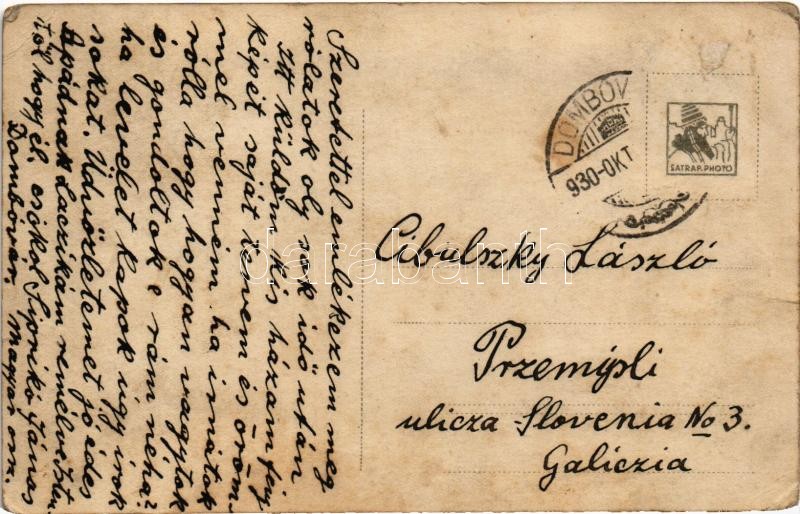 Szeretettel emlékezem meg
rólatok oly sok idő után
Itt küldöm kis házam fény
képét saját tervem és öröm-
mel venném ha irnátok
rólla hogy hogyan vagytok
és gondoltok e rám néha?
ha levelet kapok úgy irok
sokat. Üdvözletemet jó édes
Apádnak Laczikám remélve Isten
től hogy él, csókol János
Dombóvár. Magyar orsz.
DOMBÓV
930-OKT
SATRAP-PHOTO
Cibulszky László
Przemýsli
ulicza Slovenia No 3.
Galiczia
darabanth